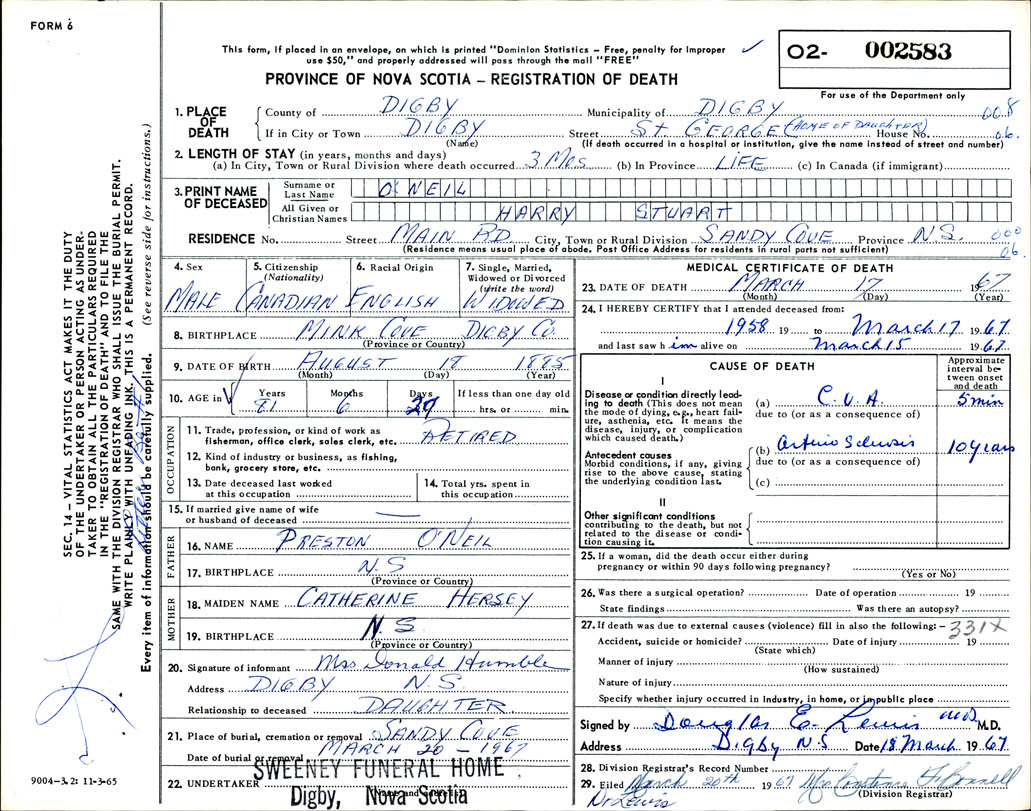 FORM 6
This form, if placed in an envelope, on which is printed "Dominion Statistics – Free, penalty for improper
use $50," and properly addressed will pass through the mail "FREE"
O2- 002583
For use of the Department only
PROVINCE OF NOVA SCOTIA – REGISTRATION OF DEATH
1. PLACE OF DEATH
County of DIGBY Municipality of DIGBY 008
If in City or Town DIGBY Street ST. GEORGE (HOME OF DAUGHTER) House No. 06.
(Name) (If death occurred in a hospital or institution, give the name instead of street and number)
2. LENGTH OF STAY (in years, months and days)
(a) In City, Town or Rural Division where death occurred 3 Mos (b) In Province LIFE (c) In Canada (if immigrant)
3. PRINT NAME OF DECEASED
Surname or Last Name O'NEIL
All Given or Christian Names HARRY STUART
RESIDENCE No. Street MAIN RD. City, Town or Rural Division SANDY COVE Province N.S. 000
(Residence means usual place of abode. Post Office Address for residents in rural parts not sufficient) 06.
4. Sex MALE
5. Citizenship (Nationality) CANADIAN
6. Racial Origin ENGLISH
7. Single, Married, Widowed or Divorced (write the word) WIDOWED
8. BIRTHPLACE MINK COVE DIGBY CO.
(Province or Country)
9. DATE OF BIRTH AUGUST 18 1885
(Month) (Day) (Year)
10. AGE in Years 81 Months 6 Days 29 If less than one day old hrs. or min.
OCCUPATION
11. Trade, profession, or kind of work as
fisherman, office clerk, sales clerk, etc. RETIRED
12. Kind of industry or business, as fishing,
bank, grocery store, etc.
13. Date deceased last worked
at this occupation
14. Total yrs. spent in
this occupation
15. If married give name of wife
or husband of deceased —
FATHER
16. NAME PRESTON O'NEIL
17. BIRTHPLACE N.S
(Province or Country)
MOTHER
18. MAIDEN NAME CATHERINE HERSEY
19. BIRTHPLACE N.S.
(Province or Country)
20. Signature of informant Mrs Donald Humble
Address DIGBY N.S.
Relationship to deceased DAUGHTER
21. Place of burial, cremation or removal SANDY COVE
Date of burial or removal MARCH 20 – 1967
22. UNDERTAKER SWEENEY FUNERAL HOME
Digby, Nova Scotia
MEDICAL CERTIFICATE OF DEATH
23. DATE OF DEATH MARCH 17 1967
(Month) (Day) (Year)
24. I HEREBY CERTIFY that I attended deceased from:
1958 19 to March 17 1967.
and last saw him alive on March 15 1967.
CAUSE OF DEATH
Approximate interval between onset and death
I
Disease or condition directly leading to death (This does not mean the mode of dying, e.g., heart failure, asthenia, etc. It means the disease, injury, or complication which caused death.)
(a) C.V.A. 5 min
due to (or as a consequence of)
Antecedent causes
Morbid conditions, if any, giving rise to the above cause, stating the underlying condition last.
(b) Arterio Sclerosis 10 years
due to (or as a consequence of)
(c)
II
Other significant conditions
contributing to the death, but not related to the disease or condition causing it.
25. If a woman, did the death occur either during
pregnancy or within 90 days following pregnancy?
(Yes or No)
26. Was there a surgical operation? Date of operation 19
State findings Was there an autopsy?
27. If death was due to external causes (violence) fill in also the following: – 331X
Accident, suicide or homicide? Date of injury 19
(State which)
Manner of injury
(How sustained)
Nature of injury
Specify whether injury occurred in industry, in home, or in public place
Signed by Douglas E. Lewis M.D. M.D.
Address Digby N.S Date 18 March 1967.
28. Division Registrar's Record Number
29. Filed March 20th 1967 Mrs Constance
(Division Registrar)
Dr Lewis
SEC. 14 – VITAL STATISTICS ACT MAKES IT THE DUTY
OF THE UNDERTAKER OR PERSON ACTING AS UNDER-
TAKER TO OBTAIN ALL THE PARTICULARS REQUIRED
IN THE "REGISTRATION OF DEATH" AND TO FILE THE
SAME WITH THE DIVISION REGISTRAR WHO SHALL ISSUE THE BURIAL PERMIT.
WRITE PLAINLY WITH UNFADING INK. THIS IS A PERMANENT RECORD.
Every item of information should be carefully supplied. (See reverse side for instructions.)
9004–3.2: 11-3-65